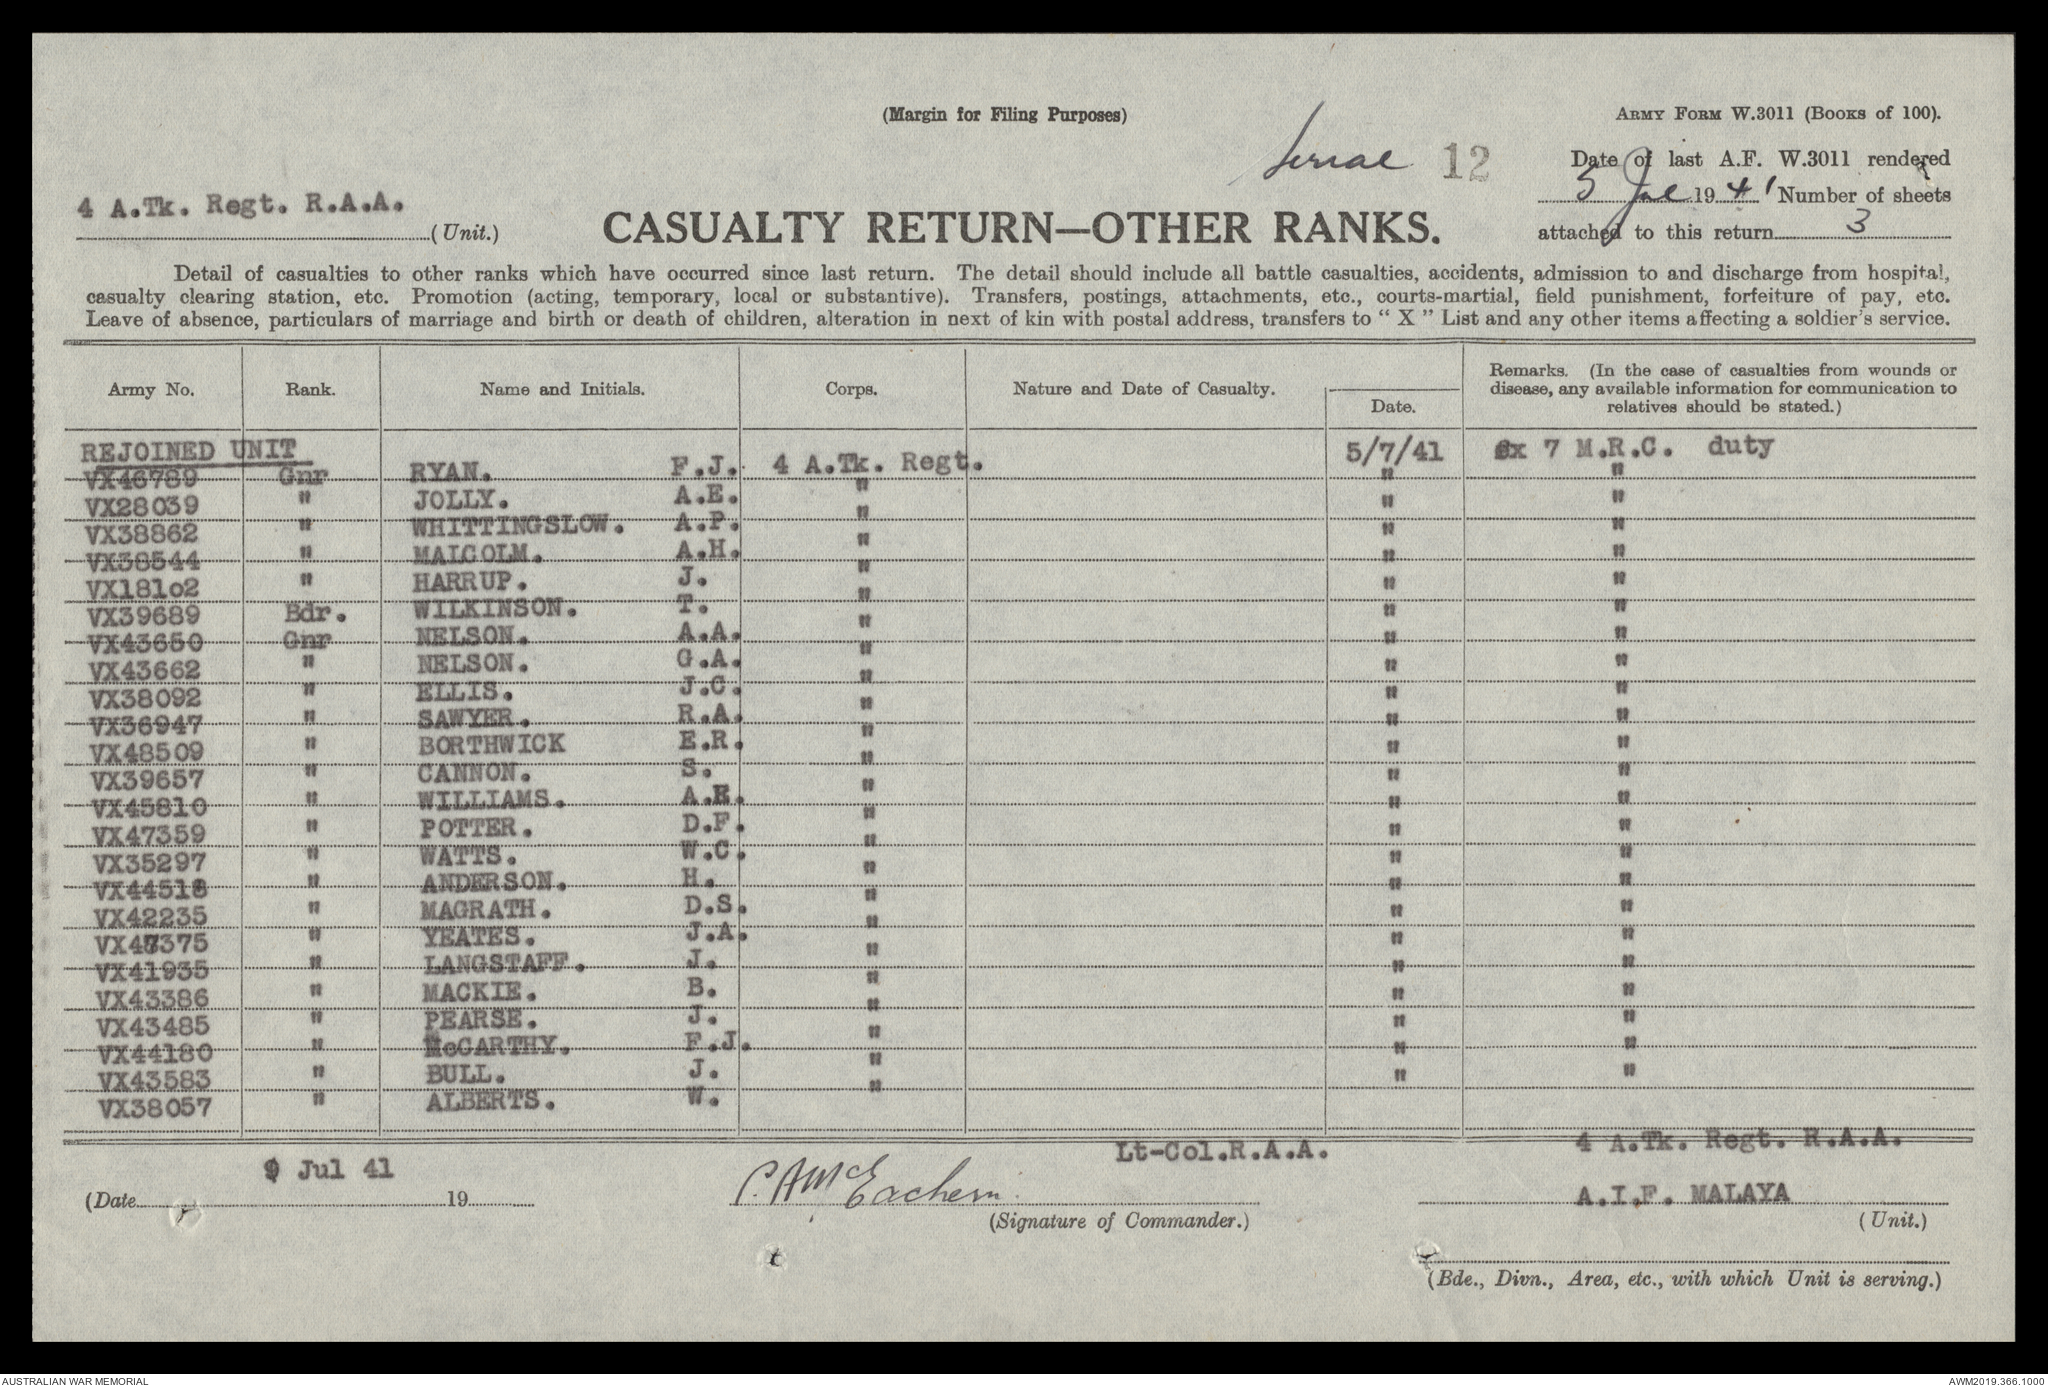 (Margin for Filing Purposes)
ARMY FORM W.3011 (BOOKS of 100).
Serial 12
Date of last A.F. W.3011 rendered
5 Jul 1941 Number of sheets
attached to this return 3
4 A.Tk. Regt. R.A.A.
(Unit.)
CASUALTY RETURN—OTHER RANKS.
Detail of casualties to other ranks which have occurred since last return. The detail should include all battle casualties, accidents, admission to and discharge from hospital,
casualty clearing station, etc. Promotion (acting, temporary, local or substantive). Transfers, postings, attachments, etc., courts-martial, field punishment, forfeiture of pay, etc.
Leave of absence, particulars of marriage and birth or death of children, alteration in next of kin with postal address, transfers to " X " List and any other items affecting a soldier's service.
Army No. Rank. Name and Initials. Corps. Nature and Date of Casualty. Date. Remarks. (In the case of casualties from wounds or
disease, any available information for communication to
relatives should be stated.)
REJOINED UNIT
VX46789 Gnr RYAN. F.J. 4 A.Tk. Regt. 5/7/41 ex 7 M.R.C. duty
VX28039 " JOLLY. A.E. " " "
VX38862 " WHITTINGSLOW. A.P. " " "
VX38544 " MALCOLM. A.H. " " "
VX18102 " HARRUP. J. " " "
VX39689 Bdr. WILKINSON. T. " " "
VX43650 Gnr NELSON. A.A. " " "
VX43662 " NELSON. G.A. " " "
VX38092 " ELLIS. J.C. " " "
VX36947 " SAWYER. R.A. " " "
VX48509 " BORTHWICK E.R. " " "
VX39657 " CANNON. S. " " "
VX45810 " WILLIAMS. A.E. " " "
VX47359 " POTTER. D.F. " " "
VX35297 " WATTS. W.C. " " "
VX44518 " ANDERSON. H. " " "
VX42235 " MAGRATH. D.S. " " "
VX47375 " YEATES. J.A. " " "
VX41935 " LANGSTAFF. J. " " "
VX43386 " MACKIE. B. " " "
VX43485 " PEARSE. J. " " "
VX44180 " McCARTHY. F.J. " " "
VX43583 " BULL. J. " " "
VX38057 " ALBERTS. W. " " "
Lt-Col.R.A.A. 4 A.Tk. Regt. R.A.A.
9 Jul 41
(Date 19 C.A McEachern A.I.F. MALAYA
(Signature of Commander.) (Unit.)
(Bde., Divn., Area, etc., with which Unit is serving.)
AUSTRALIAN WAR MEMORIAL AWM2019.366.1000